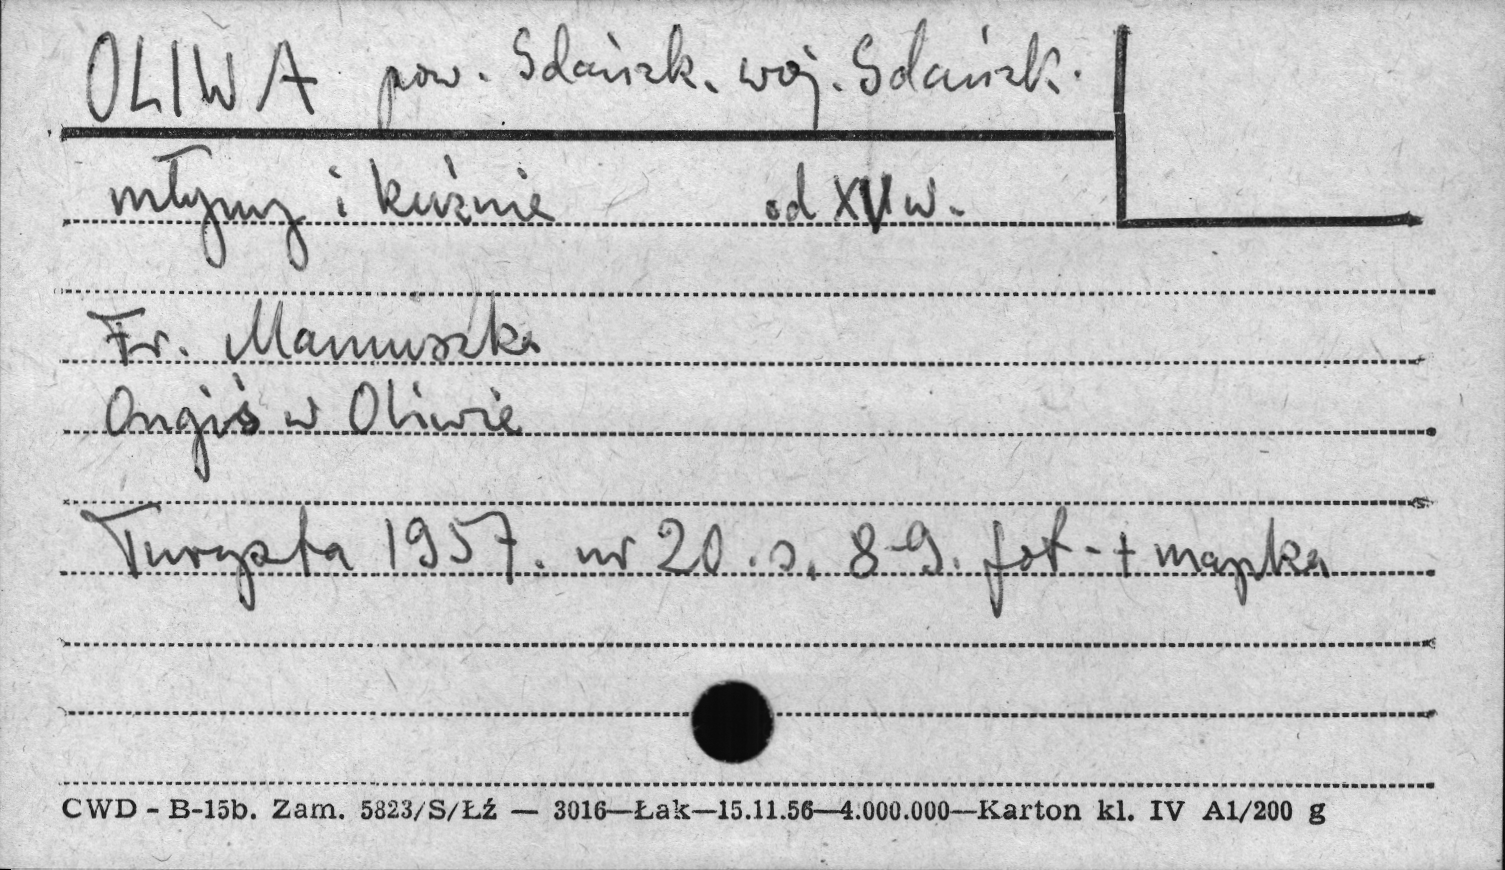 OLIWA pow. Gdańsk. woj. Gdańsk.
młyny i kuźnie od XVI w.
Fr. Mamuszka
Ongiś w Oliwie
Turysta 1957. nr 20. s. 8-9. fot. + mapka
CWD - B-15b. Zam. 5823/S/ŁŹ — 3016—Łak—15.11.56—4.000.000—Karton kl. IV A1/200 g